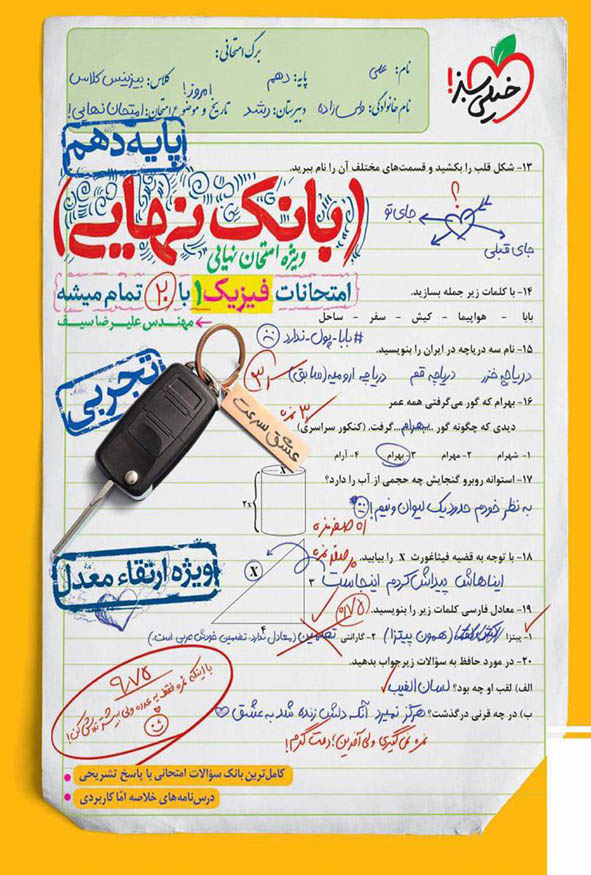 برگ امتحانی:
نام: علی
پایه: دهم
کلاس: بیزینس کلاس
نام خانوادگی: ولی زاده
دبیرستان: رشد
تاریخ و موضوع امتحان: امتحان نهایی!
امروز!
خیلی سبز!
پایه دهم
۱۳- شکل قلب را بکشید و قسمت‌های مختلف آن را نام ببرید.
؟
(بانک نهایی)
جای تو
جای قبلی
ویژه امتحان نهایی
امتحانات فیزیک ۱ با ۲۰ تمام میشه
مهندس علیرضا سیف
۱۴- با کلمات زیر جمله بسازید.
بابا - هواپیما - کیش - سفر - ساحل
#بابا-پول-ندارد
۱۵- نام سه دریاچه در ایران را بنویسید.
دریاچه خزر دریاچه قم دریاچه ارومیه (سابق)
تجربی
۱۶- بهرام که گور می‌گرفتی همه عمر
۳ نمره
دیدی که چگونه گور ...بهرام... گرفت. (کنکور سراسری)
عشق سرعت
۱- شهرام ۲- مهرام ۳- بهرام ۴- آرام
۱۷- استوانه روبرو گنجایش چه حجمی از آب را دارد؟
x
۲x
به نظر خودم حدود یک لیوان و نیم!
ویژه ارتقاء معدل
۱۸- با توجه به قضیه فیثاغورث X را بیابید.
X
۳
۴
ایناهاش پیداش کردم اینجاست
۱۹- معادل فارسی کلمات زیر را بنویسید.
۰/۷۵
۱- پیتزا (همون پیتزا) ۲- گارانتی تضمین (معادل ندارد، تضمین خودش عربی است.)
۲۰- در مورد حافظ به سؤالات زیر جواب بدهید.
الف) لقب او چه بود؟ لسان الغیب
ب) در چه قرنی درگذشت؟ هرگز نمیرد آنکه دلش زنده شد به عشق
نمره نمی‌گیری ولی آفرین؛ دمت گرم!
۹/۷۵
کامل‌ترین بانک سؤالات امتحانی با پاسخ تشریحی
درس‌نامه‌های خلاصه امّا کاربردی